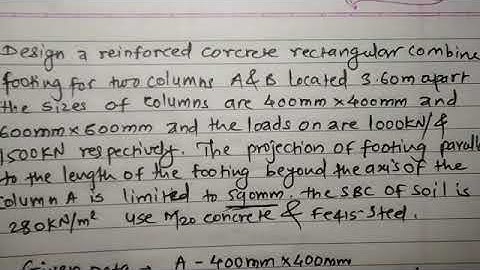 Design a reinforced corcrete rectangular combine
footing for two columns A & B located 3.60m apart
the sizes of columns are 400mm×400mm and
600mm×600mm and the loads on are 1000KN/&
1500KN respectively. The projection of footing parall
to the length of the footing beyond the axis of the
column A is limited to 590mm. the SBC of soil is
280KN/m² use M20 concrete & Fe415-Steel.
A - 400mm×400mm